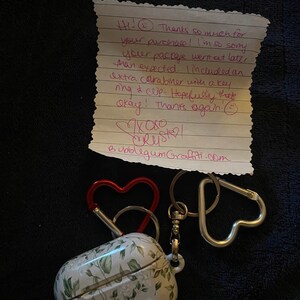 Hi! Thanks so much for
your purchase! I'm so sorry
your package went out later
than expected. I included an
extra carabiner with a key
ring & clip. Hopefully that's
okay! Thanks again
XOXO
BubblegumGraffiti.com